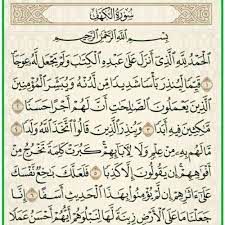 سُورَةُ الكَهۡفِ
بِسۡمِ ٱللَّهِ ٱلرَّحۡمَٰنِ ٱلرَّحِيمِ
ٱلۡحَمۡدُ لِلَّهِ ٱلَّذِيٓ أَنزَلَ عَلَىٰ عَبۡدِهِ ٱلۡكِتَٰبَ وَلَمۡ يَجۡعَل لَّهُۥ عِوَجَاۜ ١
قَيِّمٗا لِّيُنذِرَ بَأۡسٗا شَدِيدٗا مِّن لَّدُنۡهُ وَيُبَشِّرَ ٱلۡمُؤۡمِنِينَ
ٱلَّذِينَ يَعۡمَلُونَ ٱلصَّٰلِحَٰتِ أَنَّ لَهُمۡ أَجۡرًا حَسَنٗا ٢
مَّٰكِثِينَ فِيهِ أَبَدٗا ٣ وَيُنذِرَ ٱلَّذِينَ قَالُواْ ٱتَّخَذَ ٱللَّهُ وَلَدٗا ٤
مَّا لَهُم بِهِۦ مِنۡ عِلۡمٖ وَلَا لِأٓبَآئِهِمۡۚ كَبُرَتۡ كَلِمَةٗ تَخۡرُجُ مِنۡ
أَفۡوَٰهِهِمۡۚ إِن يَقُولُونَ إِلَّا كَذِبٗا ٥ فَلَعَلَّكَ بَٰخِعٞ نَّفۡسَكَ
عَلَىٰٓ ءَاثَٰرِهِمۡ إِن لَّمۡ يُؤۡمِنُواْ بِهَٰذَا ٱلۡحَدِيثِ أَسَفًا ٦ إِنَّا
جَعَلۡنَا مَا عَلَى ٱلۡأَرۡضِ زِينَةٗ لَّهَا لِنَبۡلُوَهُمۡ أَيُّهُمۡ أَحۡسَنُ عَمَلٗا